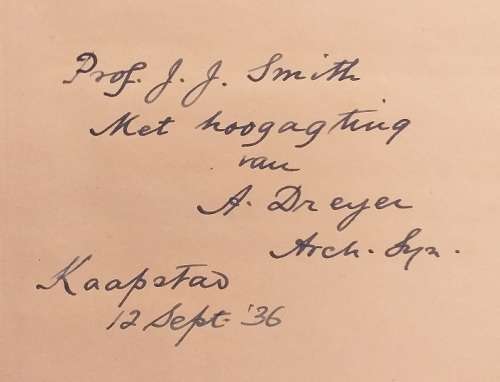 Prof. J. J. Smith
Met hoogagting
van
A. Dreyer
Arch. Syn.
Kaapstad
12 Sept. '36